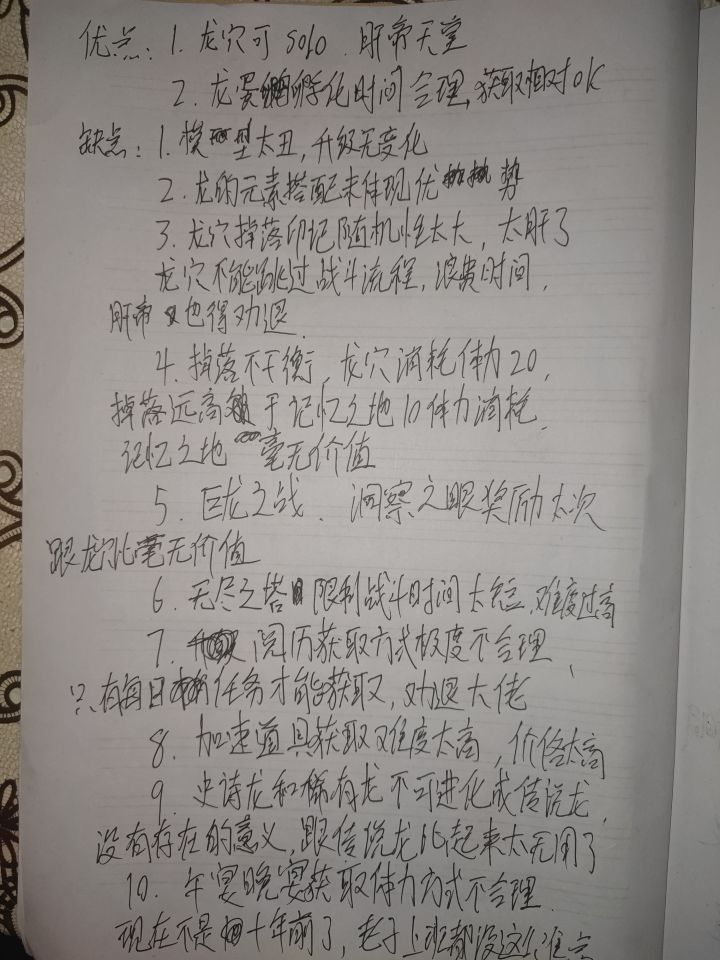 优点：1. 龙穴可solo．肝帝天堂
2. 龙蛋孵化时间合理，获取相对ok
缺点：1. 模型太丑，升级无变化
2. 龙的元素搭配未体现优势
3. 龙穴掉落印记随机性太大，太肝了
龙穴不能跳过战斗流程，浪费时间，
肝帝也得劝退
4. 掉落不平衡，龙穴消耗体力20，
掉落远高于记忆之地10体力消耗．
记忆之地毫无价值
5. 巨龙之战．洞察之眼奖励太次
跟龙穴比毫无价值
6. 无尽之塔限制战斗时间太短，难度过高
7. 阅历获取方式极度不合理，
只有每日任务才能获取，劝退大佬
8. 加速道具获取难度太高，价格太高
9. 史诗龙和稀有龙不可进化成传说龙，
没有存在的意义，跟传说龙比起来太无用了
10. 午宴晚宴获取体力方式不合理．
现在不是十年前了，老子上班都没这么准点